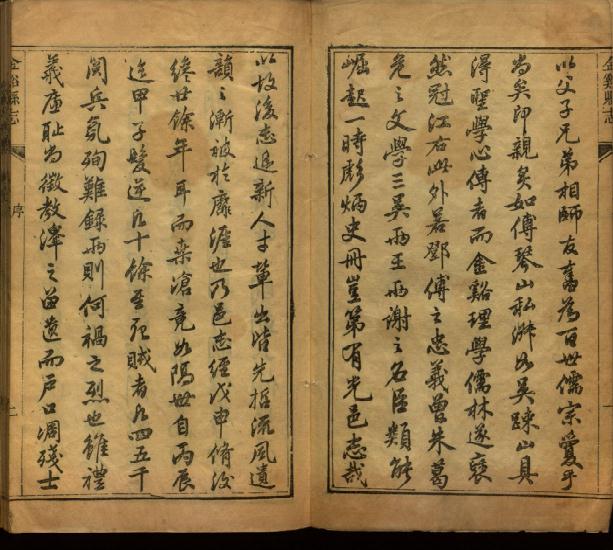 以父子兄弟相師友蔚為百世儒宗爰乎
尚矣印親炙如傅琴山私淑如吳踈山具
淂聖學心傳者而金谿理學儒林遂裒
然冠江右此外若鄧傅之忠義曾朱葛
危之文學三吳兩王兩謝之名臣類能
崛起一時彪炳史冊豈第有光邑志哉
以故後志進新人才輩出皆先招流風遺
韻之漸被於靡涯也乃邑志經戊申脩後
終廿餘年耳而桒滄竟如隔世自丙辰
迄甲子髮逆凡十餘至死賊者凡四五千
閱兵氛殉難錄兩則何禍之烈也雖禮
義廉耻尚徵教澤之留遺而戶口凋殘士
金谿縣志
序
金谿縣志